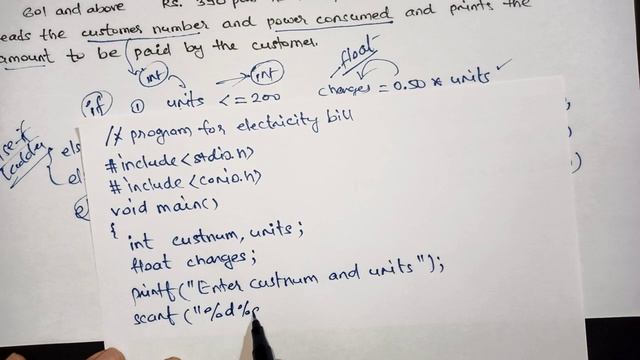 601 and above Rs. 390
eads the customer number and power consumed and prints the
amount to be paid by the customer.
float
int int
if ① units <= 200 changes = 0.50 * units ✓
els
el
/* program for electricity bill
#include<stdio.h>
#include<conio.h>
void main()
{ int custnum, units;
float changes;
printf("Enter custnum and units");
scanf("%d%